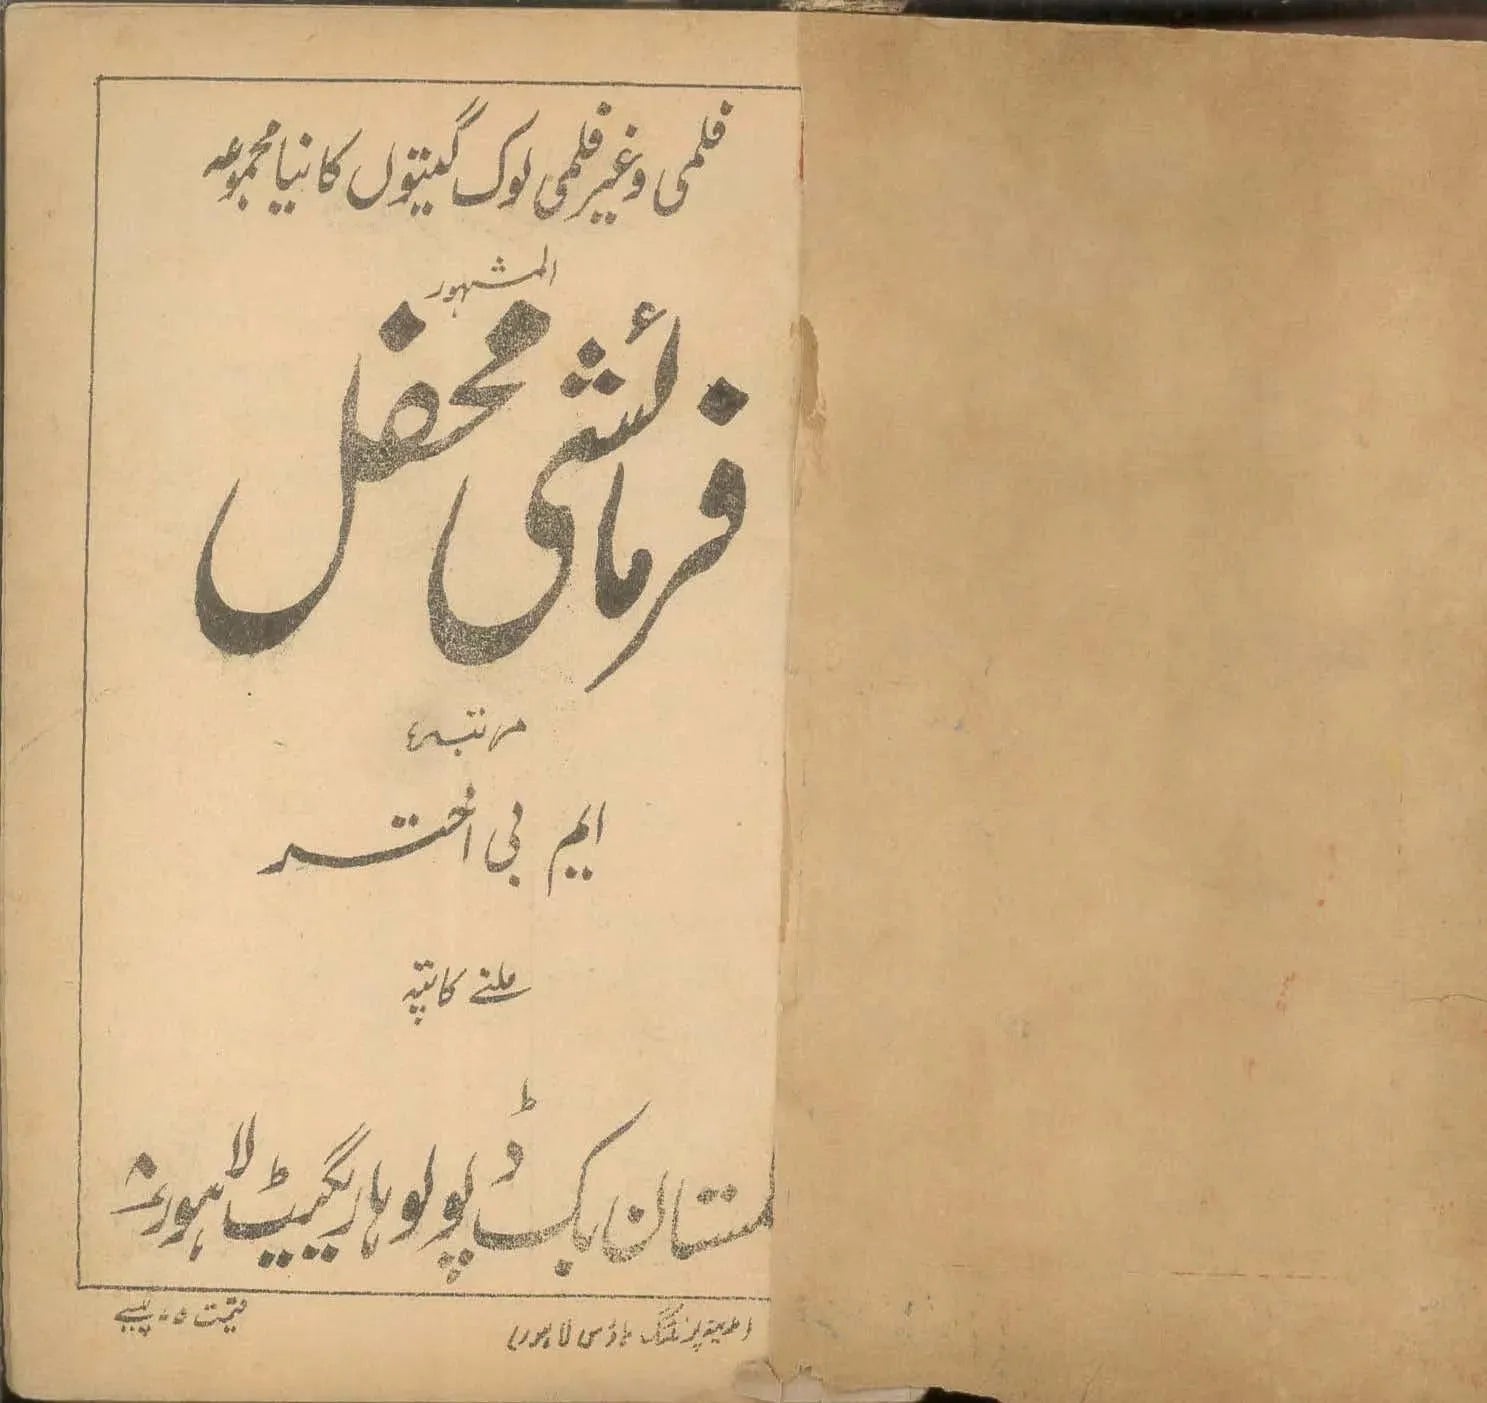 فلمی و غیر فلمی لوک گیتوں کا نیا مجموعہ
المشہور
فرمائشی محفل
مرتبہ
ایم بی اختر
ملنے کا پتہ
بک ڈپو لوہاری گیٹ لاہور
پرنٹنگ ہاؤس لاہور
قیمت ۵۰ پیسے